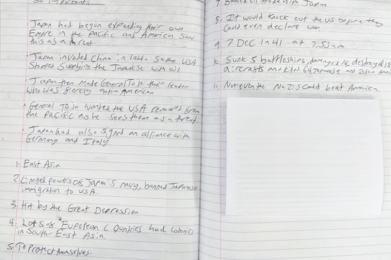 Japan had begun expanding their own
Empire in the Pacific and America saw
this as a threat
Japan invaded China so the USA
stopped the Japanese with oil
Japan then made General Tojo their leader
who was fiercly anti-American
General Tojo wanted the USA removed from
the Pacific as he sees them as a threat
Japan had also signed an alliance with
Germany and Italy
1. East Asia
2. Limited the of Japan's navy, banned Japanese
immigration to USA
3. Hit by the Great Depression
4. Lots of European Countries had colonies
in South East Asia
5. To Protect themselves
made in Japan
8. It would knock out the US before they
could even declare war
9. 7 Dec 1941 at 7:55am
Sunk 5 battleships, damaged destroyed
aircrafts and killed
11. Not even the Nazis could beat America